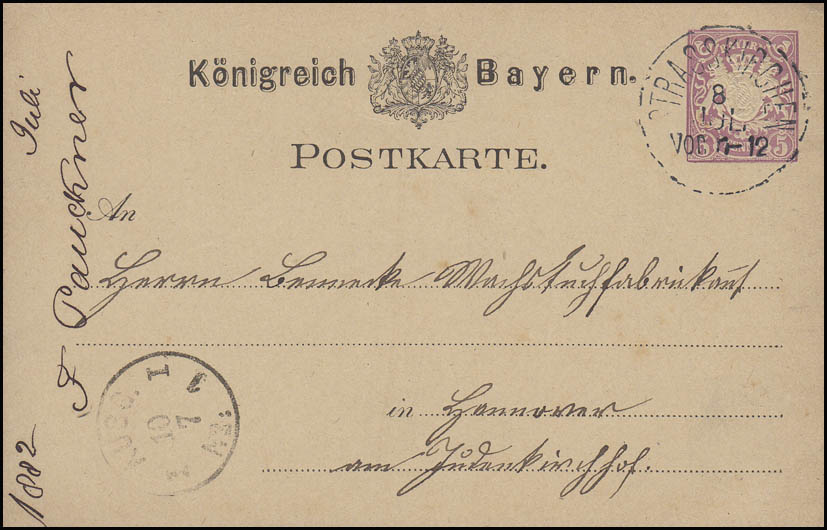 Königreich Bayern.
POSTKARTE.
STRASSKIRCHEN
8
JUL.
VOR 11-12
5 5
An
Herrn Bennecke Wachstuchfabrikant
in Hannover
am Judenkirchhof.
1882 F Pauckner Juli
AUSG.
10
7